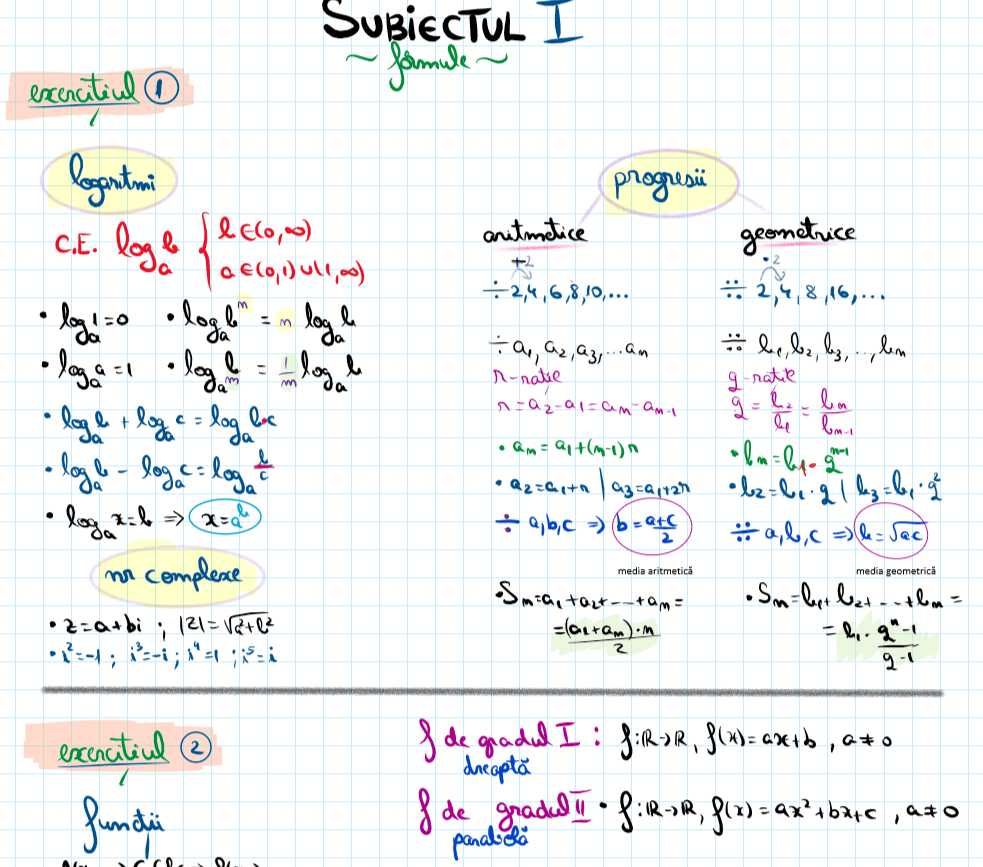 SUBIECTUL I
~ formule ~
exercitiul 1
logaritmi
C.E. logₐb { b∈(0,∞)
a∈(0,1)∪(1,∞)
• logₐ1=0 • logₐbᵐ = m logₐb
• logₐa=1 • log_{aᵐ} b = 1/m logₐb
• logₐb + logₐc = logₐb•c
• logₐb - logₐc = logₐ b/c
• logₐx=b ⇒ x=aᵇ
nr complexe
• z=a+bi ; |z|=√a²+b²
• i²=-1 ; i³=-i ; i⁴=1 ; i⁵=i
progresii
aritmetice
+2
÷2,4,6,8,10,...
÷a₁, a₂, a₃,...aₙ
r-ratie
r=a₂-a₁=aₙ-aₙ₋₁
• aₙ=a₁+(n-1)r
• a₂=a₁+r | a₃=a₁+2r
÷ a,b,c ⇒ b=a+c/2
media aritmetică
• Sₙ=a₁+a₂+----+aₙ=
=(a₁+aₙ)·n/2
geometrice
•2
∺ 2,4,8,16,...
∺ b₁,b₂,b₃,..,bₙ
q-ratie
q=b₂/b₁=bₙ/bₙ₋₁
• bₙ=b₁•qⁿ⁻¹
• b₂=b₁·q | b₃=b₁·q²
∺ a,b,c ⇒ b=√ac
media geometrică
• Sₙ=b₁+b₂+---+bₙ=
=b₁·qⁿ-1/q-1
exercitiul 2
functii
f de gradul I : f:ℝ→ℝ, f(x)=ax+b , a≠0
dreaptă
f de gradul II • f:ℝ→ℝ, f(x)=ax²+bx+c , a≠0
parabolă